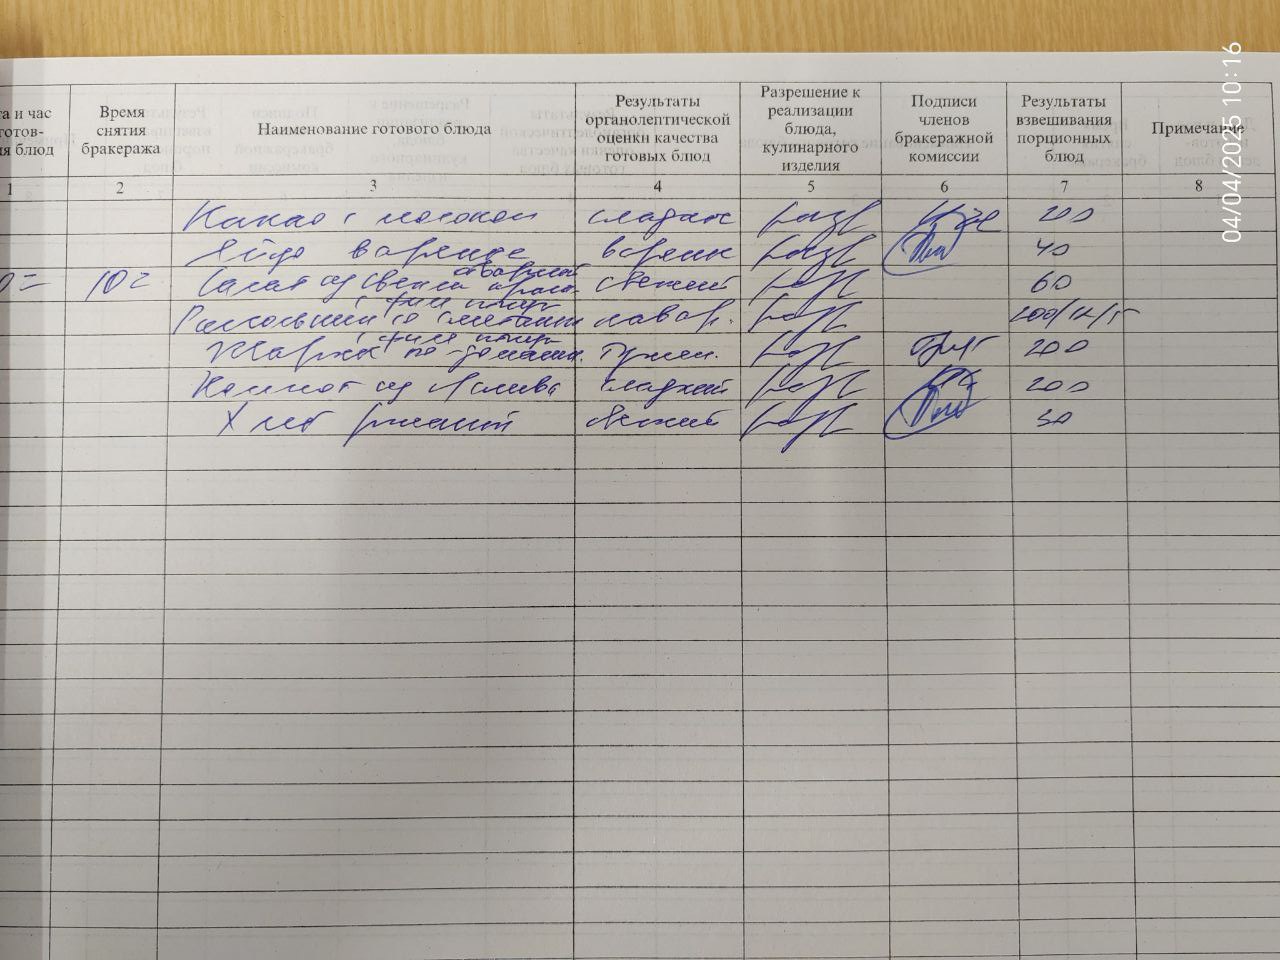 та и час готов-
ия блюд
Время снятия бракеража
Наименование готового блюда
Результаты органолептической оценки качества готовых блюд
Разрешение к реализации блюда, кулинарного изделия
Подписи членов бракеражной комиссии
Результаты взвешивания порционных блюд
Примечание
1 2 3 4 5 6 7 8
Какао с молоком сладкое разр 200
Яйцо вареное варен разр 40
10= Салат из свеклы отварной свежий разр 60
Рассольник со сметаной навар. разр 200/12/5
Жаркое по-домашн. тушен. разр 200
Компот из сладкий разр 200
Хлеб ржаной свежий разр 30
04/04/2025 10:16